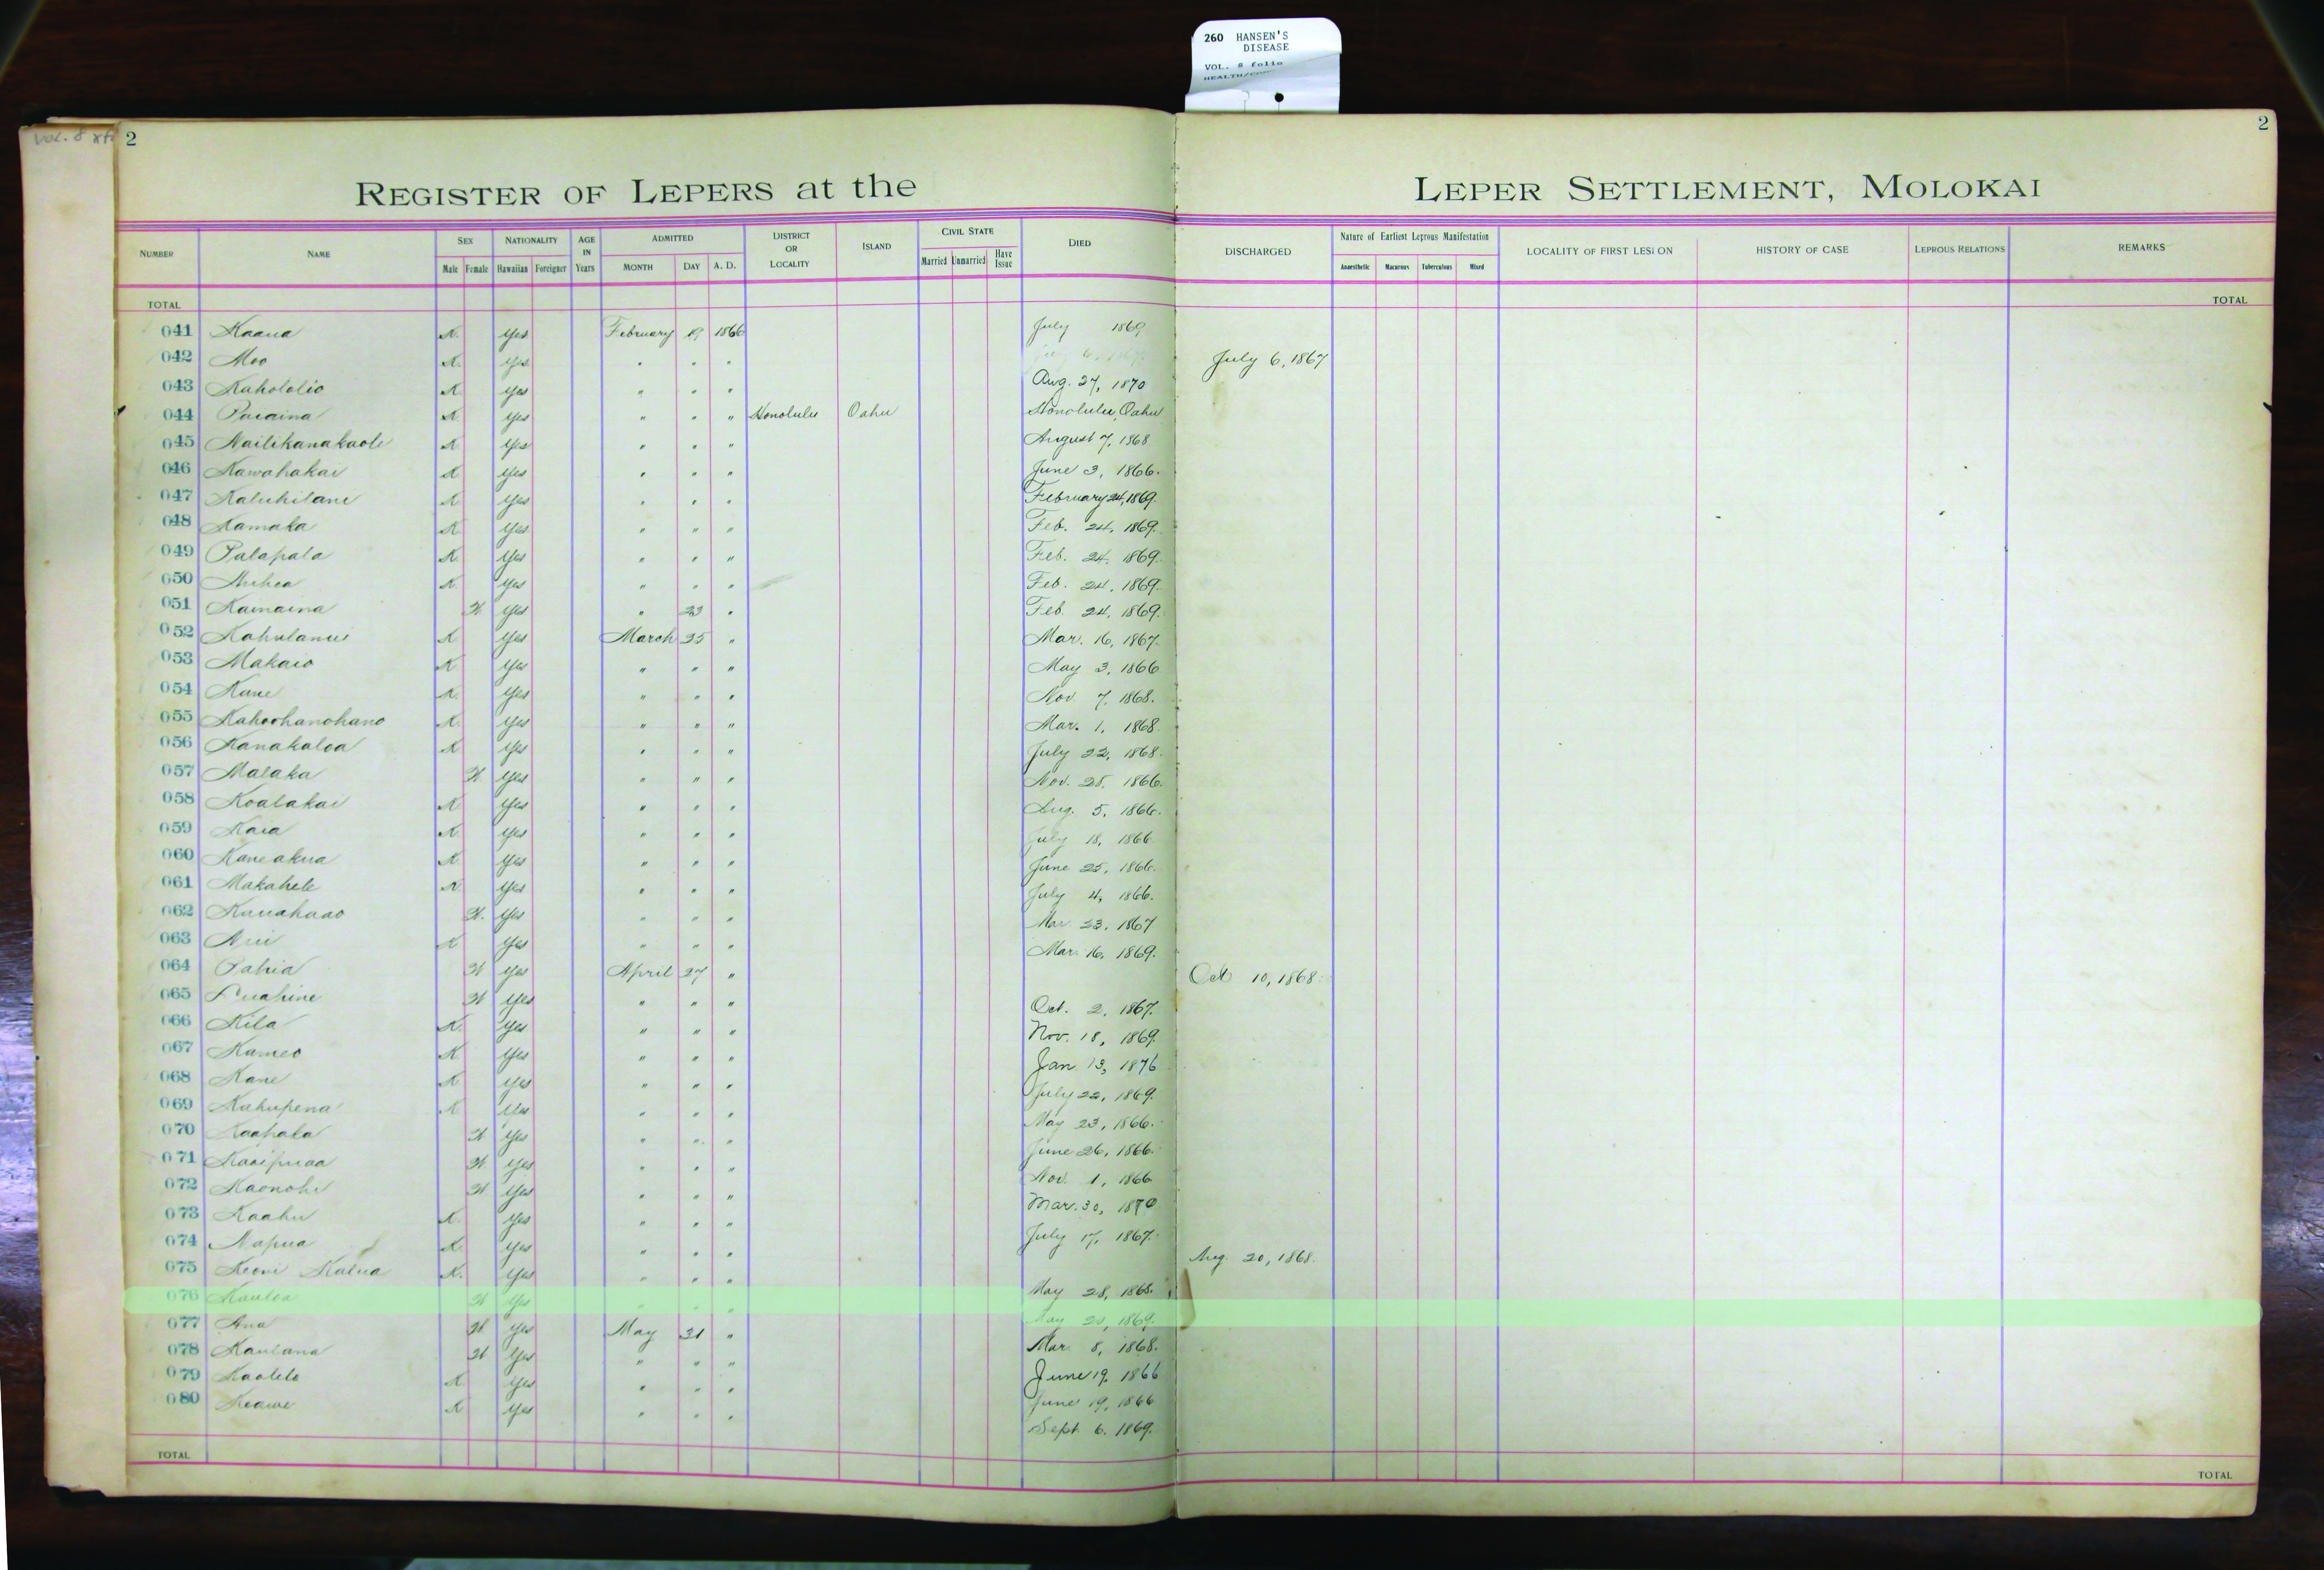 260 HANSEN'S
DISEASE
VOL. 8 folio
VOL. 8
2
2
REGISTER OF LEPERS at the LEPER SETTLEMENT, MOLOKAI
NUMBER NAME SEX NATIONALITY AGE IN Years ADMITTED DISTRICT OR LOCALITY ISLAND CIVIL STATE DIED DISCHARGED Nature of Earliest Leprous Manifestation LOCALITY OF FIRST LESION HISTORY OF CASE LEPROUS RELATIONS REMARKS
Male Female Hawaiian Foreigner MONTH DAY A. D. Married Unmarried Have Issue Anaesthetic Macurous Tuberculous Mixed
TOTAL TOTAL
041 Kaaua K. Yes February 19 1866 July 1869
042 Moo K. Yes " " " July 6, 1867
043 Kahololio K. Yes " " " Aug. 27, 1870
044 Puaaina K. Yes " " " Honolulu Oahu Honolulu, Oahu
045 Nailikanakaole K Yes " " " August 7, 1868
046 Kawahakai K Yes " " " June 3, 1866.
047 Kaluhilani K Yes " " " February 24, 1869.
048 Kamaka K Yes " " " Feb. 24, 1869.
049 Palapala K. Yes " " " Feb. 24, 1869.
050 Auhea K. Yes " " " Feb. 24, 1869.
051 Kamaina W. Yes " 23 " Feb. 24, 1869.
052 Kahulanui K Yes March 25 " Mar. 16, 1867.
053 Makaio K Yes " " " May 3, 1866
054 Kane K. Yes " " " Nov. 7, 1868.
055 Kahoohanohano K. Yes " " " Mar. 1, 1868.
056 Kanakaloa K Yes " " " July 22, 1868.
057 Malaka W Yes " " " Nov. 28, 1866.
058 Koalakai K Yes " " " Aug. 5, 1866.
059 Kaia K. Yes " " " July 18, 1866.
060 Kaneakua K. Yes " " " June 25, 1866.
061 Makahele K. Yes " " " July 4, 1866.
062 Kauahaao W. Yes " " " Mar. 23, 1867
063 K Yes " " " Mar. 16, 1869.
064 Pahia W Yes April 27 " Oct 10, 1868.
065 Luahine W Yes " " " Oct. 2, 1867.
066 Kila K. Yes " " " Nov. 18, 1869.
067 Kameo K Yes " " " Jan. 13, 1876
068 Kane K Yes " " " July 22, 1869.
069 Kahupena K Yes " " " May 23, 1866.
070 Kaahala W Yes " " " June 26, 1866.
071 Kaaipuaa W. Yes " " " Nov. 1, 1866
072 Kaonohi W Yes " " " Mar. 30, 1870
073 Kaahu K. Yes " " " July 17, 1867.
074 Napua K. Yes " " " Aug. 20, 1868.
075 Keoni Kalua K. Yes " " " May 28, 1868.
076 Kauloa W Yes " " " May 20, 1869.
077 Ana W. Yes May 31 " Mar. 8, 1868.
078 Kaulana W Yes " " " June 19, 1866
079 Kaolelo K. Yes " " " June 19, 1866
080 Keawe K Yes " " " Sept. 6, 1869.
TOTAL TOTAL